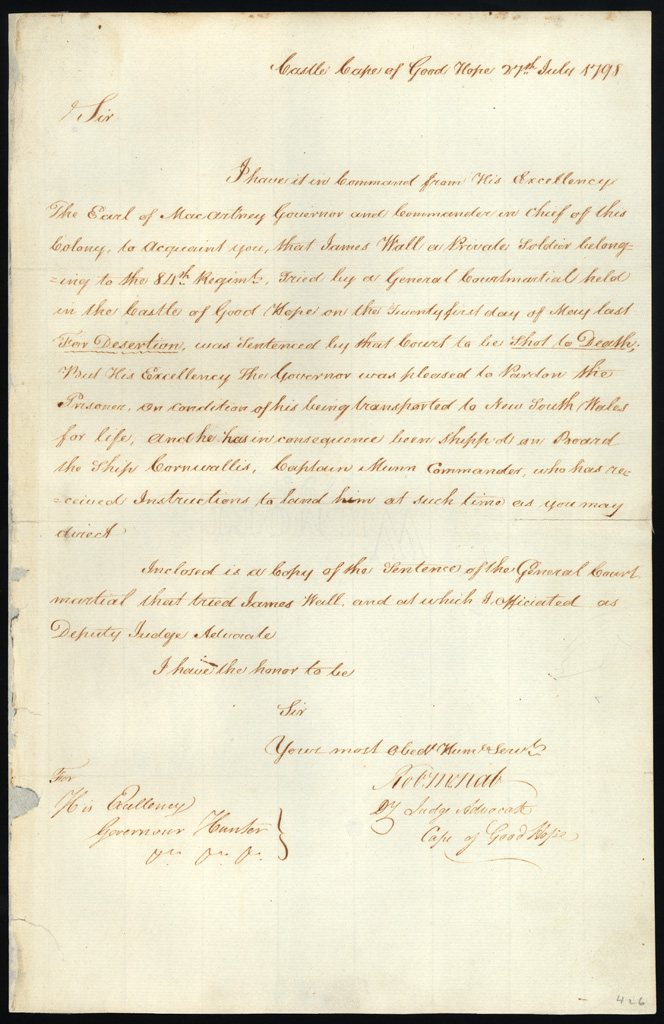 Castle Cape of Good Hope 27th July 1798
Sir
I have it in Command from His Excellency
The Earl of Macartney Governor and Commander in Chief of this
Colony, to acquaint you, that James Wall a Private Soldier belong=
=ing to the 84th Regimt. Tried by a General Courtmartial held
in the Castle of Good Hope on the Twenty first day of May last
For Desertion, was Sentenced by that Court to be Shot to Death,
But His Excellency The Governor was pleased to Pardon the
Prisoner, on condition of his being transported to New South Wales
for life, and he has in consequence been shipp'd on Board
the Ship Cornwallis, Captain Munn Commander, who has re=
=ceived Instructions to land him at such time as you may
direct
Inclosed is a Copy of the Sentence of the General Court
martial that tried James Wall, and at which I officiated as
Deputy Judge Advocate
I have the honor to be
Sir
Your most Obedt Humle Servt
Dy Judge Advocate
Cape of Good Hope
For
His Excellency
Governour Hunter
426